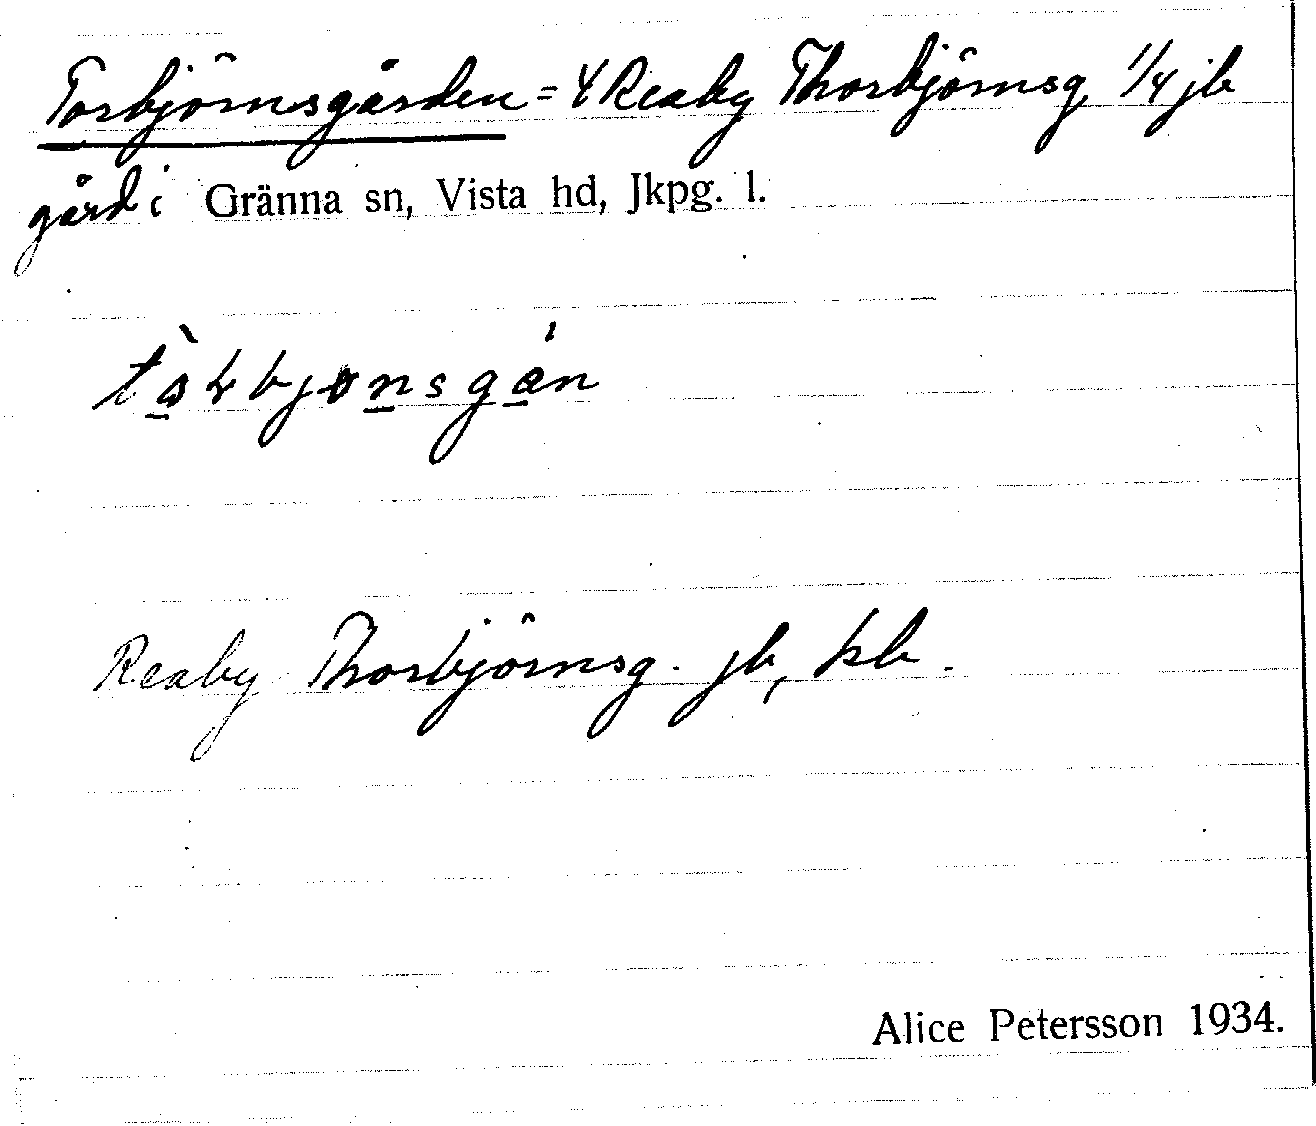 Torbjörnsgården = 4 Reaby Thorbjörnsg. 1/4 jb
gård i Gränna sn, Vista hd, Jkpg. l.
Reaby Thorbjörnsg. jb, kb.
Alice Petersson 1934.